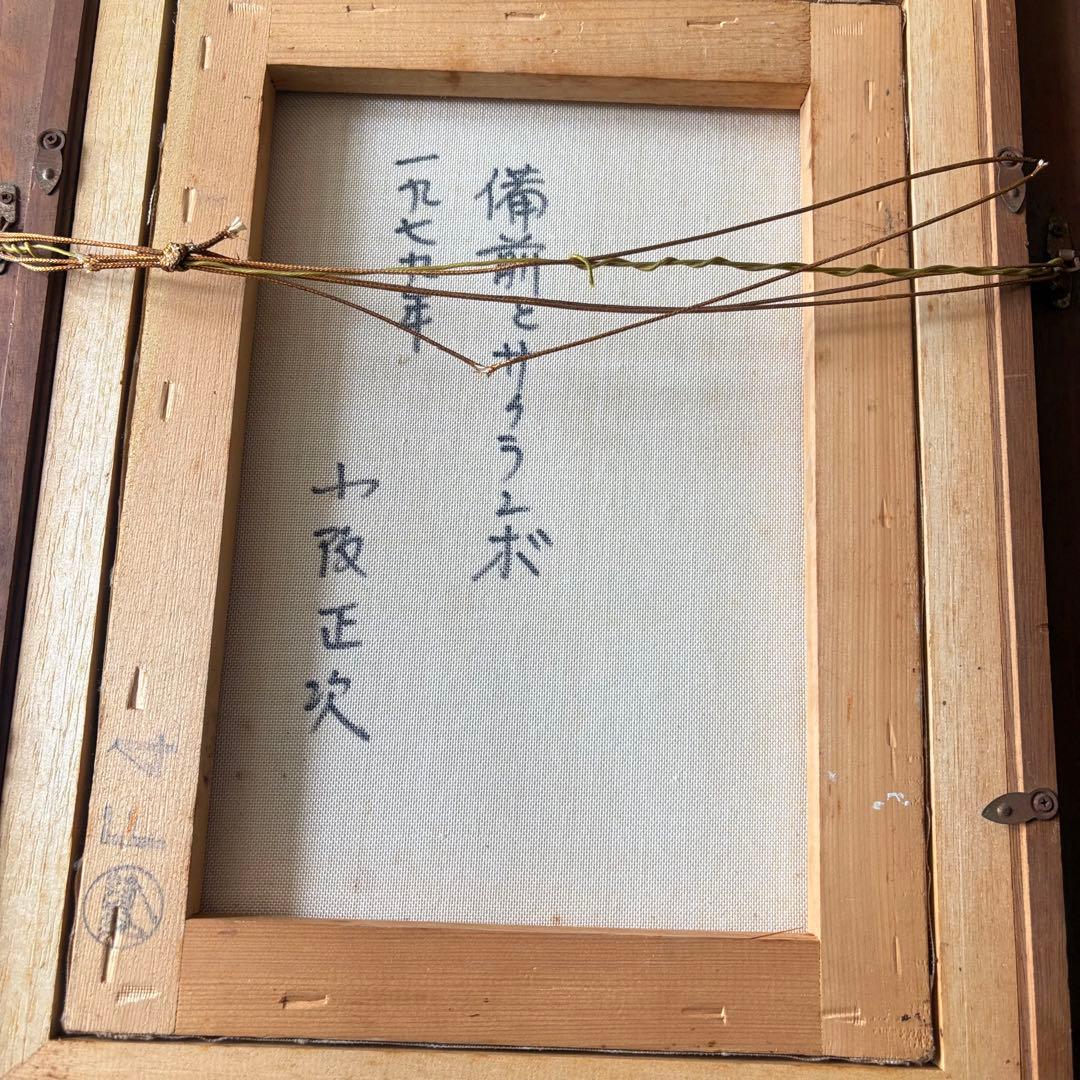 備前とサクランボ
一九七九年
小阪正次
F4